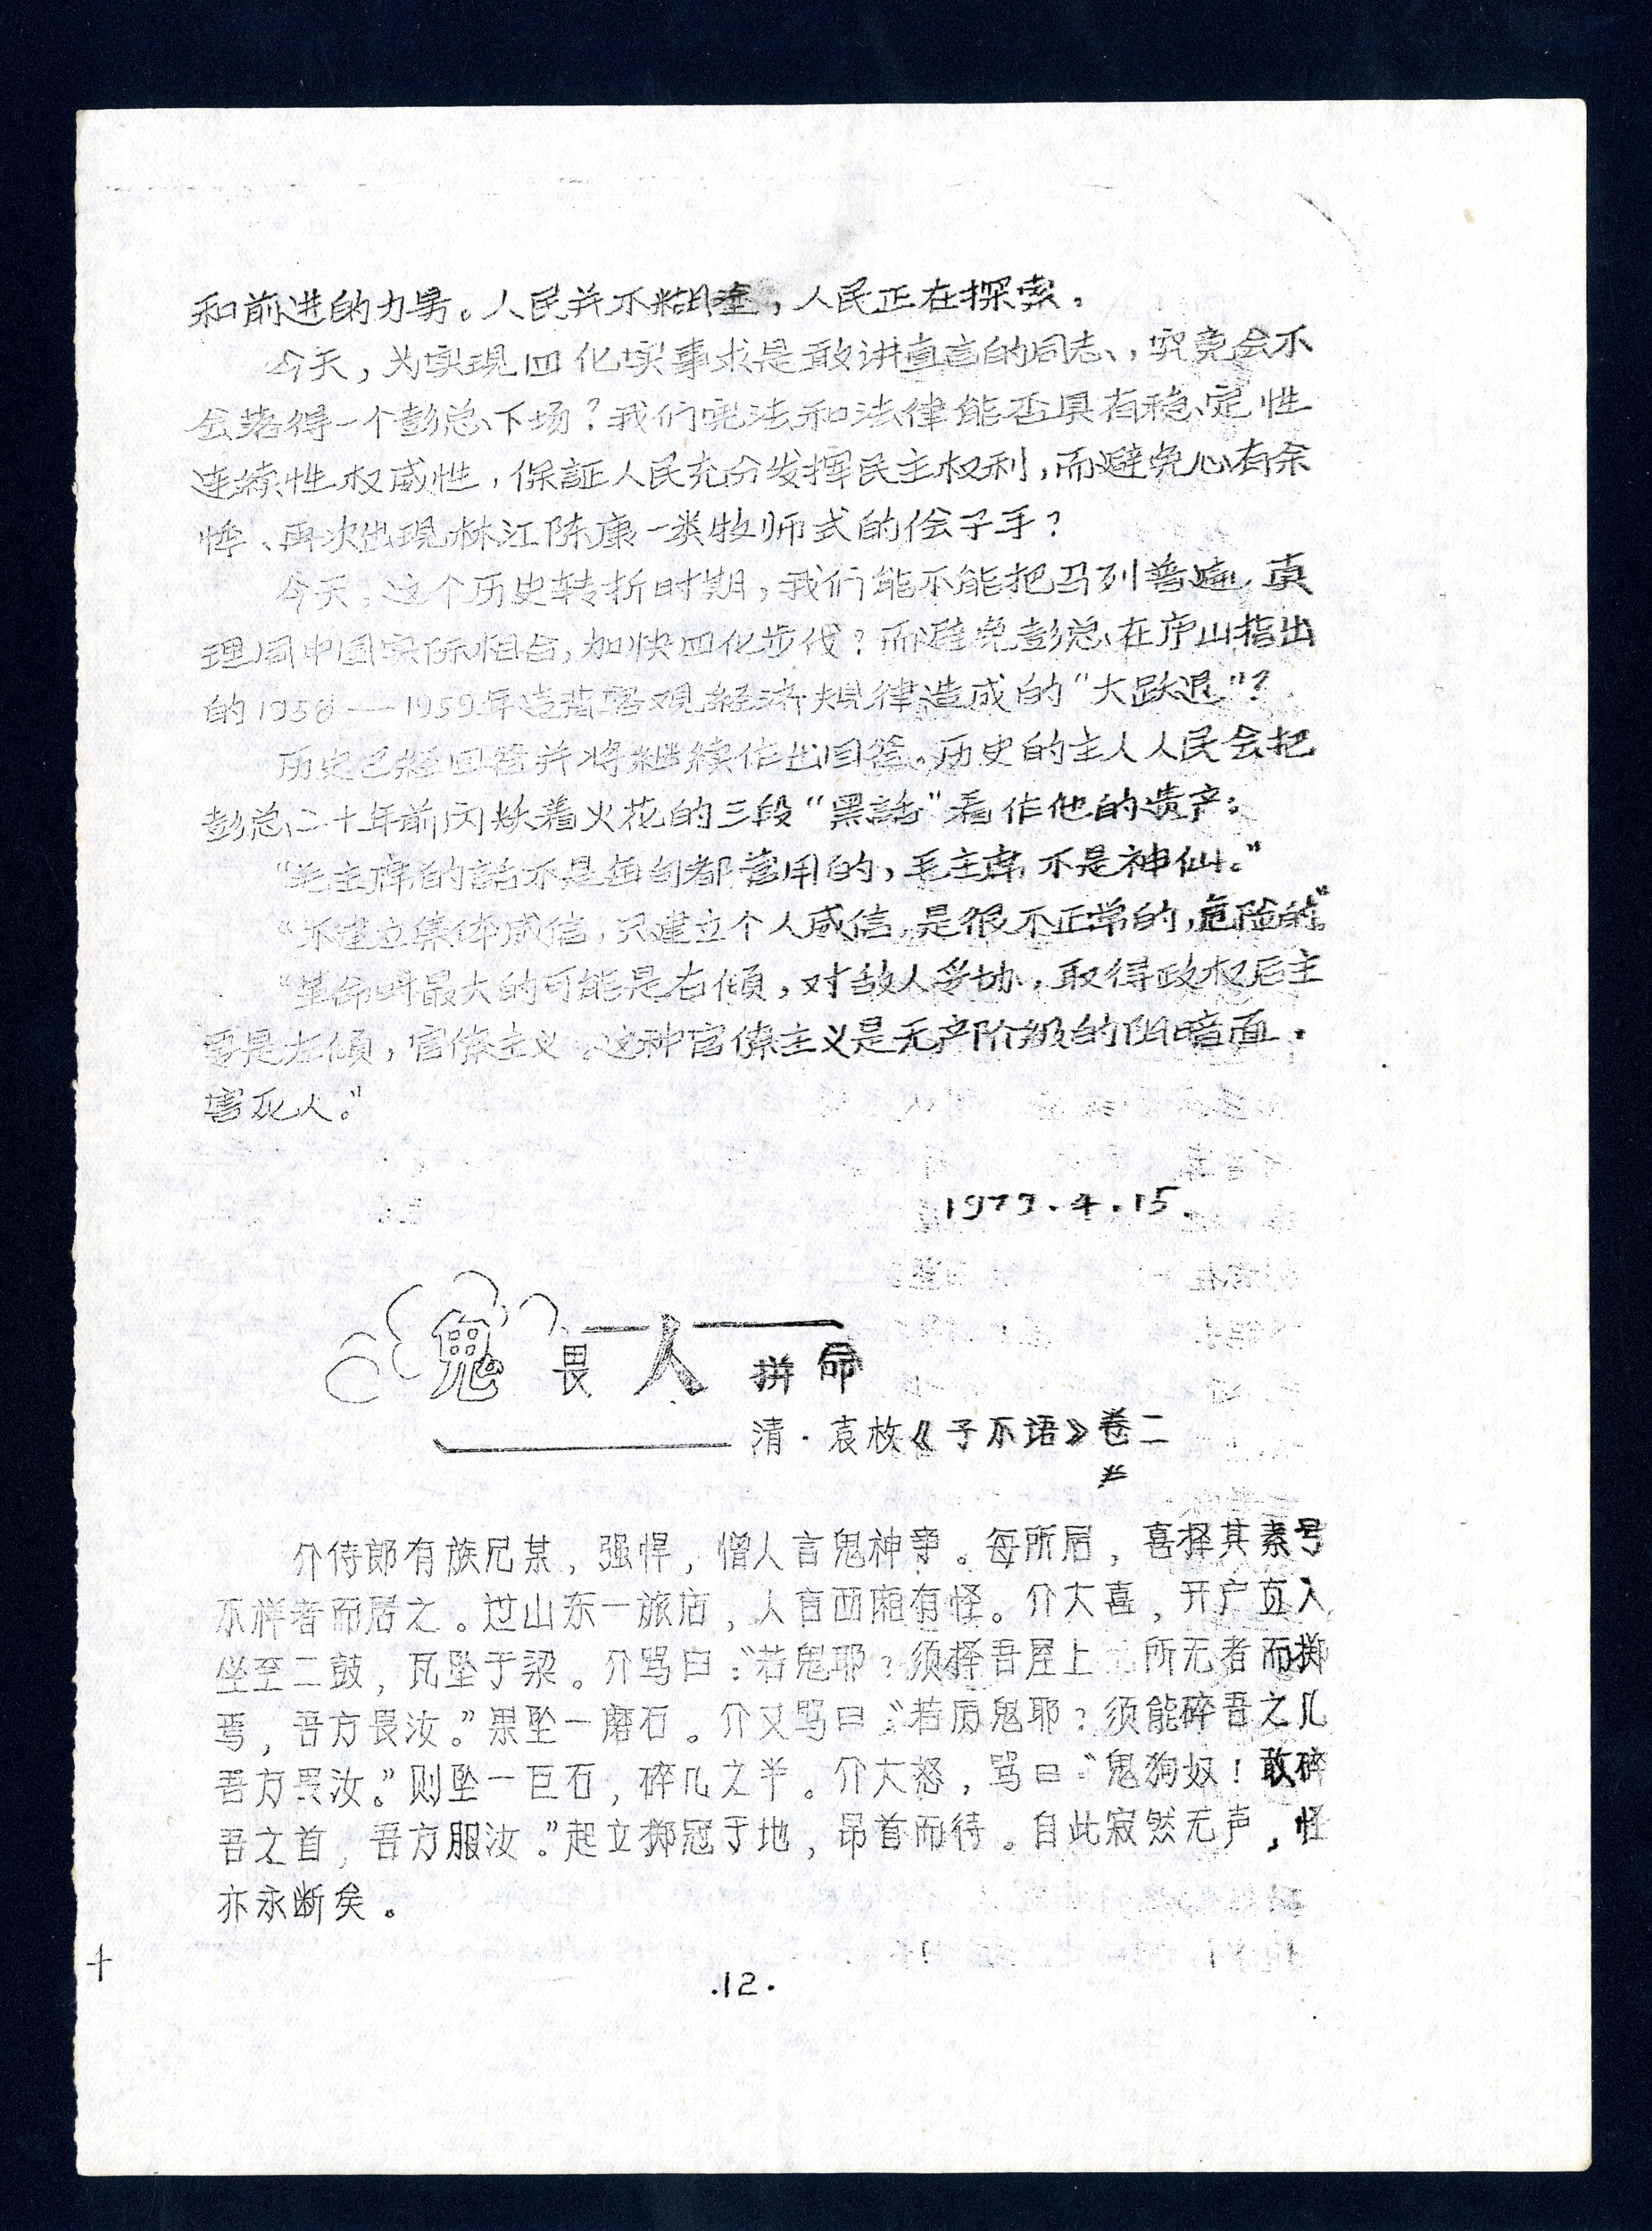 和前进的力男。人民并不糊塗，人民正在探索。
今天，为实现四化实事求是敢讲直言的同志，究竟会不
会落得一个彭总下场？我们宪法和法律能否具有稳定性
连续性权威性，保証人民充分发挥民主权利，而避免心有余
悸、再次出现林江陈康一类牧师式的侩子手？
今天，这个历史转折时期，我们能不能把马列普遍真
理同中国实际相合，加快四化步伐？而避免彭总在庐山指出
的1958——1959年违背客观经济规律造成的“大跃退”？
历史已经回答并将继续作出回答。历史的主人人民会把
彭总二十年前闪烁着火花的三段“黑話”看作他的遗产：
“毛主席的話不是每句都管用的，毛主席不是神仙。”
“不建立集体威信，只建立个人威信，是很不正常的，危险的。”
“革命时最大的可能是右倾，对敌人妥协，取得政权后主
要是左倾，官僚主义。这种官僚主义是无产阶级的阴暗面，
害死人。”
1979.4.15.
鬼畏人拼命
清·袁枚《子不语》卷二
介侍郎有族兄某，强悍，憎人言鬼神事。每所居，喜择其素号
不祥者而居之。过山东一旅店，人言西厢有怪。介大喜，开户直入
坐至二鼓，瓦坠于梁。介骂曰：“若鬼耶？须择吾屋上 所无者而掷
焉，吾方畏汝。”果坠一磨石。介又骂曰：“若厉鬼耶？须能碎吾之几
吾方畏汝。”则坠一巨石，碎几之半。介大怒，骂曰“鬼狗奴！敢碎
吾之首，吾方服汝。”起立掷冠于地，昂首而待。自此寂然无声，怪
亦永断矣。
.12.